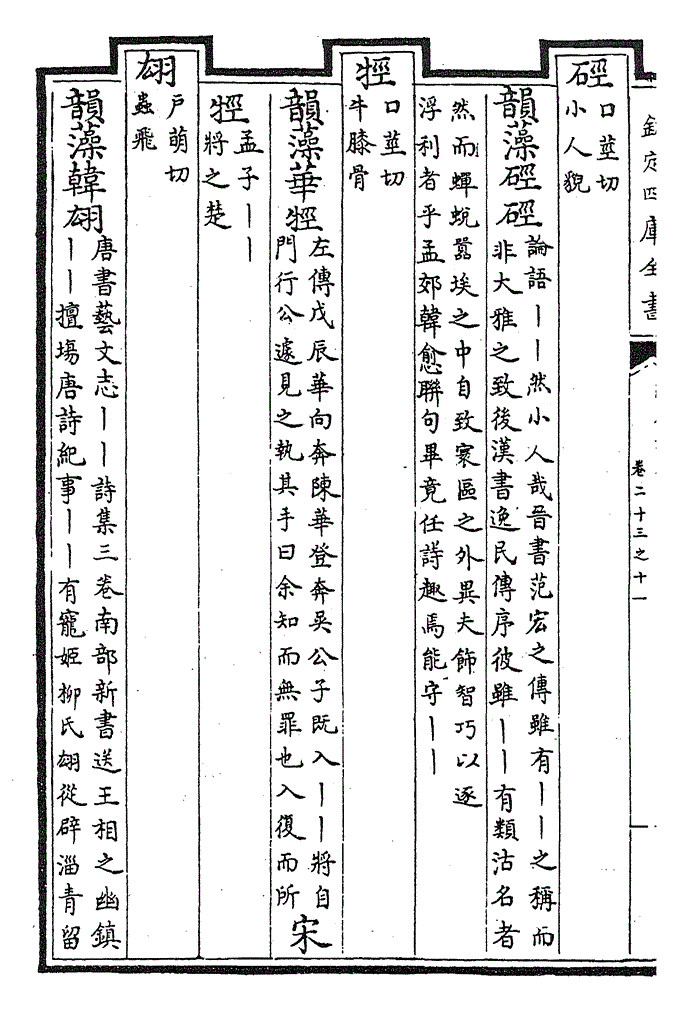 欽定四庫全書
卷二十三之十一
硜
口莖切
小人貌
韻藻硜硜
論語〡〡然小人哉晉書范宏之傳雖有〡〡之稱而
非大雅之致後漢書逸民傳序彼雖〡〡有類沽名者
然而蟬蛻囂埃之中自致寰區之外異夫飾智巧以逐
浮利者乎孟郊韓愈聯句畢竟任詩趣焉能守〡〡
牼
口莖切
牛膝骨
韻藻華牼
左傳戊辰華向奔陳華登奔吳公子既入〡〡將自
門行公遽見之執其手曰余知而無罪也入復而所
宋
牼
孟子〡〡
將之楚
翃
戶萌切
蟲飛
韻藻韓翃
唐書藝文志〡〡詩集三卷南部新書送王相之幽鎮
〡〡擅場唐詩紀事〡〡有寵姬柳氏翃從辟淄青留